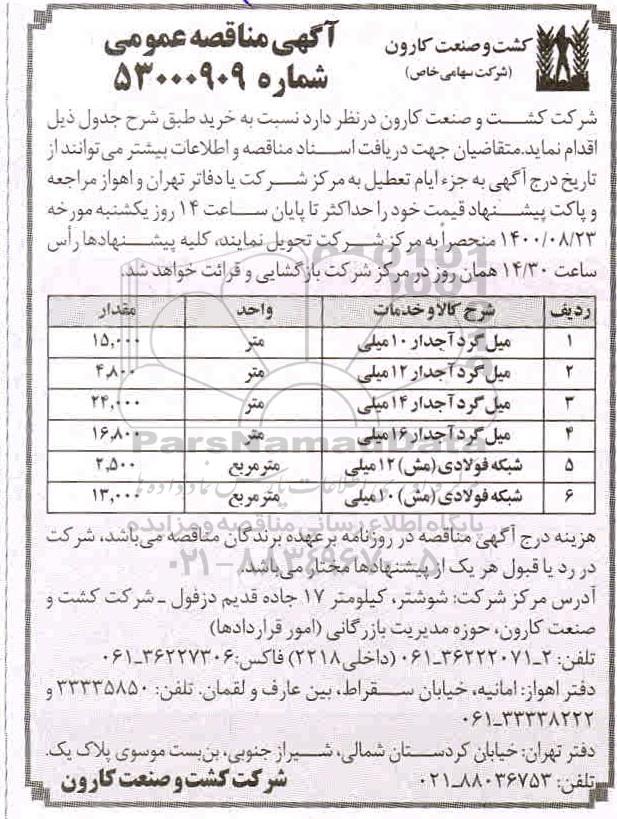 کشت و صنعت کارون
(شرکت سهامی خاص)
آگهی مناقصه عمومی
شماره ۵۳۰۰۰۹۰۹
شرکت کشت و صنعت کارون درنظر دارد نسبت به خرید طبق شرح جدول ذیل
اقدام نماید.متقاضیان جهت دریافت اسناد مناقصه و اطلاعات بیشتر می‌توانند از
تاریخ درج آگهی به جزء ایام تعطیل به مرکز شرکت یا دفاتر تهران و اهواز مراجعه
و پاکت پیشنهاد قیمت خود را حداکثر تا پایان ساعت ۱۴ روز یکشنبه مورخه
۱۴۰۰/۰۸/۲۳ منحصراً به مرکز شرکت تحویل نمایند، کلیه پیشنهادها رأس
ساعت ۱۴/۳۰ همان روز در مرکز شرکت بازگشایی و قرائت خواهد شد.
ردیف شرح کالا و خدمات واحد مقدار
۱ میل گرد آجدار ۱۰ میلی متر ۱۵,۰۰۰
۲ میل گرد آجدار ۱۲ میلی متر ۴,۸۰۰
۳ میل گرد آجدار ۱۴ میلی متر ۲۴,۰۰۰
۴ میل گرد آجدار ۱۶ میلی متر ۱۶,۸۰۰
۵ شبکه فولادی (مش) ۱۲ میلی مترمربع ۲,۵۰۰
۶ شبکه فولادی (مش) ۱۰ میلی مترمربع ۱۳,۰۰۰
ParsNamadData
پایگاه اطلاع رسانی مناقصه و مزایده
۰۲۱-۸۸۳۴۹۶۷۰-۵
هزینه درج آگهی مناقصه در روزنامه برعهده برندگان مناقصه می‌باشد، شرکت
در رد یا قبول هر یک از پیشنهادها مختار می‌باشد.
آدرس مرکز شرکت: شوشتر، کیلومتر ۱۷ جاده قدیم دزفول ـ شرکت کشت و
صنعت کارون، حوزه مدیریت بازرگانی (امور قراردادها)
تلفن: ۲ـ۳۶۲۲۲۰۷۱ـ۰۶۱ (داخلی ۲۲۱۸) فاکس: ۳۶۲۲۷۳۰۶ـ۰۶۱
دفتر اهواز: امانیه، خیابان سقراط، بین عارف و لقمان. تلفن: ۳۳۳۳۵۸۵۰ و
۳۳۳۳۸۲۲۲ـ۰۶۱
دفتر تهران: خیابان کردستان شمالی، شیراز جنوبی، بن‌بست موسوی پلاک یک.
تلفن: ۸۸۰۳۶۷۵۳ـ۰۲۱
شرکت کشت و صنعت کارون